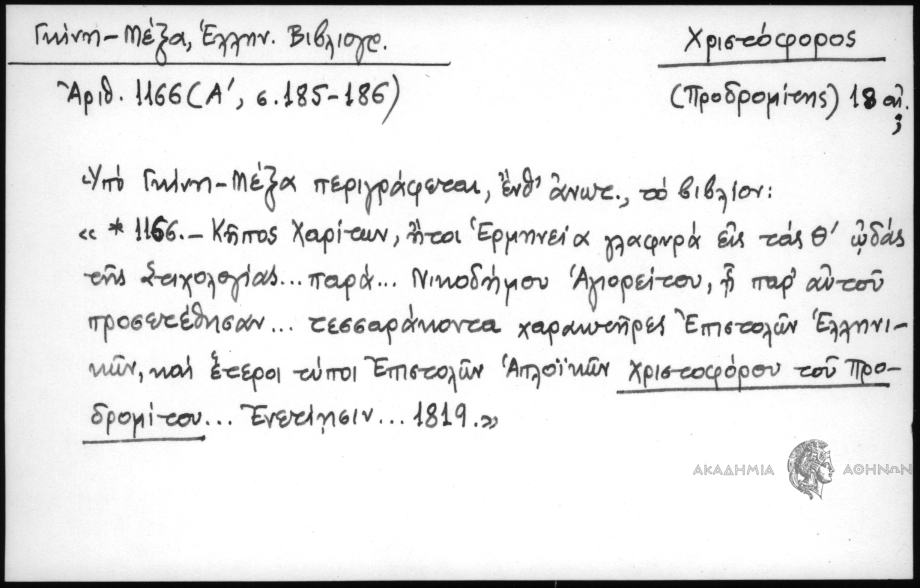 Γκίνη-Μέξα, Ἑλλην. Βιβλιογρ.
Χριστόφορος
Ἀριθ. 1166 (Α', σ. 185-186)
(Προδρομίτης) 18 αἰ.;
Ὑπό Γκίνη-Μέξα περιγράφεται, ἔνθ' ἀνωτ., τό βιβλίον:
« * 1166.- Κῆπος Χαρίτων, ἤτοι Ἑρμηνεία γλαφυρά εἰς τάς Θ' ᾠδάς
τῆς Στιχολογίας... παρά... Νικοδήμου Ἁγιορείτου, ᾗ παρ' αὐτοῦ
προσετέθησαν... τεσσαράκοντα χαρακτῆρες Ἐπιστολῶν Ἑλληνι-
κῶν, καί ἕτεροι τύποι Ἐπιστολῶν Ἁπλοϊκῶν Χριστοφόρου τοῦ Προ-
δρομίτου... Ἐνετίῃσιν... 1819.»
ΑΚΑΔΗΜΙΑ ΑΘΗΝΩΝ